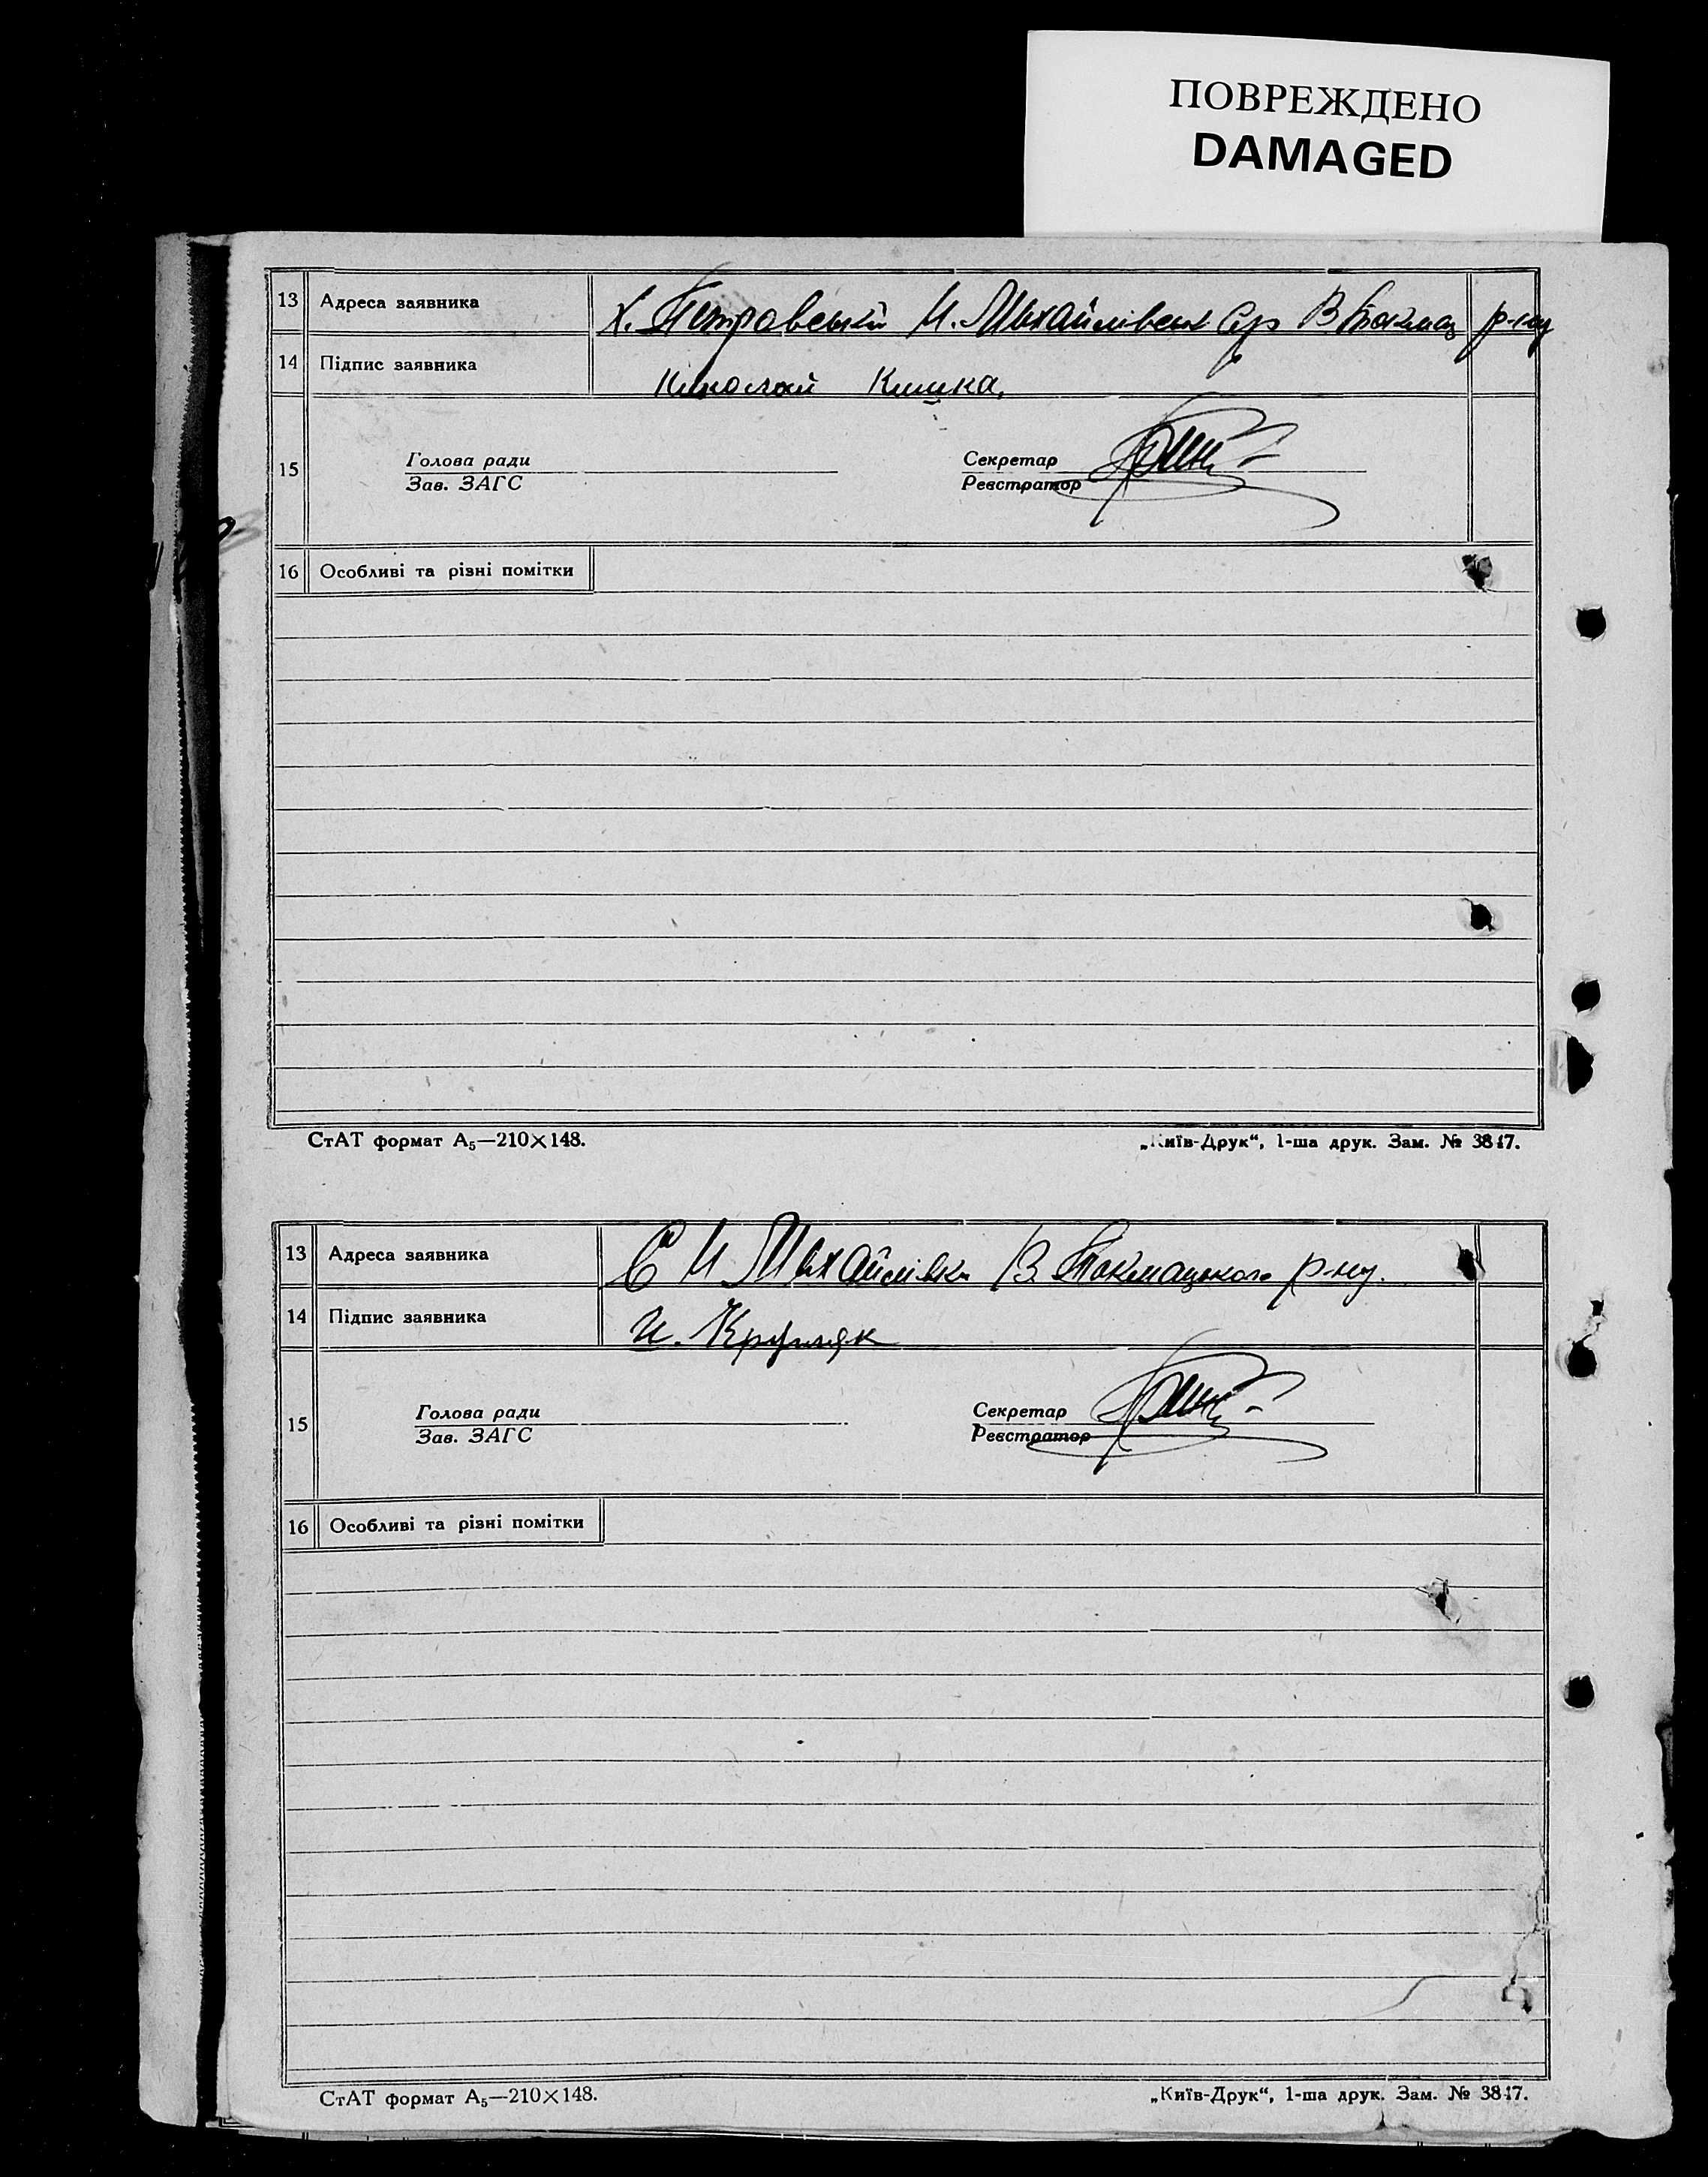 ПОВРЕЖДЕНО
DAMAGED
13 Адреса заявника Х. Петровський Н. Михайлівськ с/р В Токмац р-ну
14 Підпис заявника Николай Кишка.
15 Голова ради Секретар
Зав. ЗАГС Реєстратор
16 Особливі та різні помітки
СтАТ формат А₅—210×148. „Київ-Друк“, 1-ша друк. Зам. № 3817.
13 Адреса заявника С Н Михайлівка В. Токмацького р-ну.
14 Підпис заявника И. Кругляк
15 Голова ради Секретар
Зав. ЗАГС Реєстратор
16 Особливі та різні помітки
СтАТ формат А₅—210×148. „Київ-Друк“, 1-ша друк. Зам. № 3817.